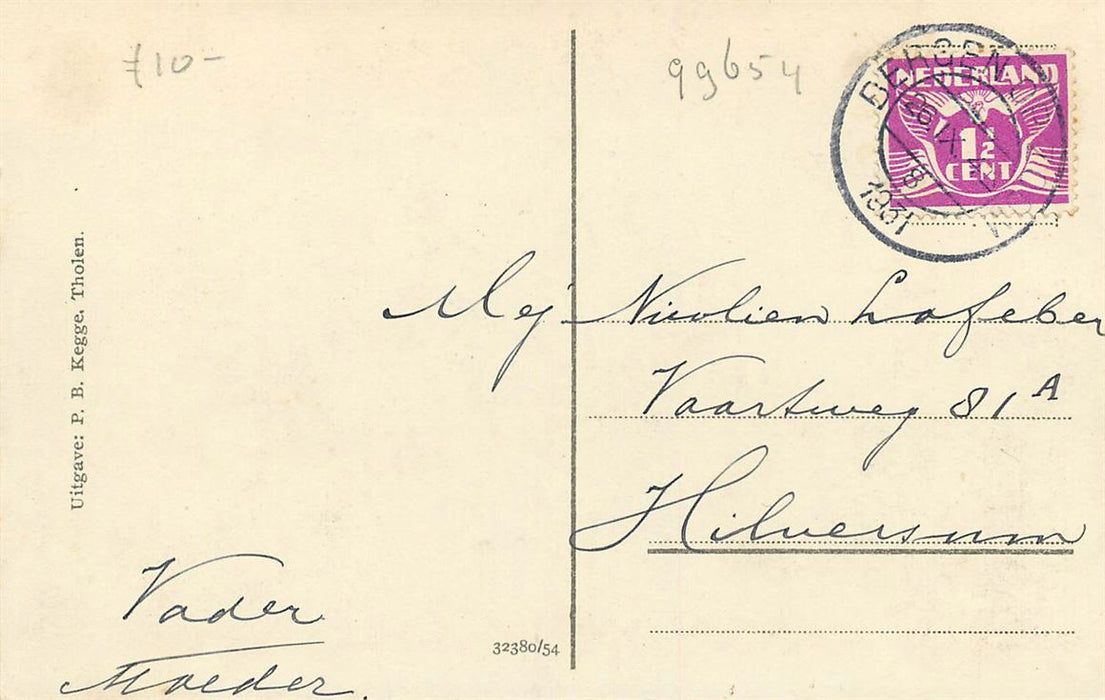 £10-
99654
BERGEN
NEDERLAND
1½
CENT
1931
Uitgave: P. B. Kegge, Tholen.
Mej Nicolien Lofeber
Vaartweg 81 A
Hilversum
Vader
Moeder.
32380/54